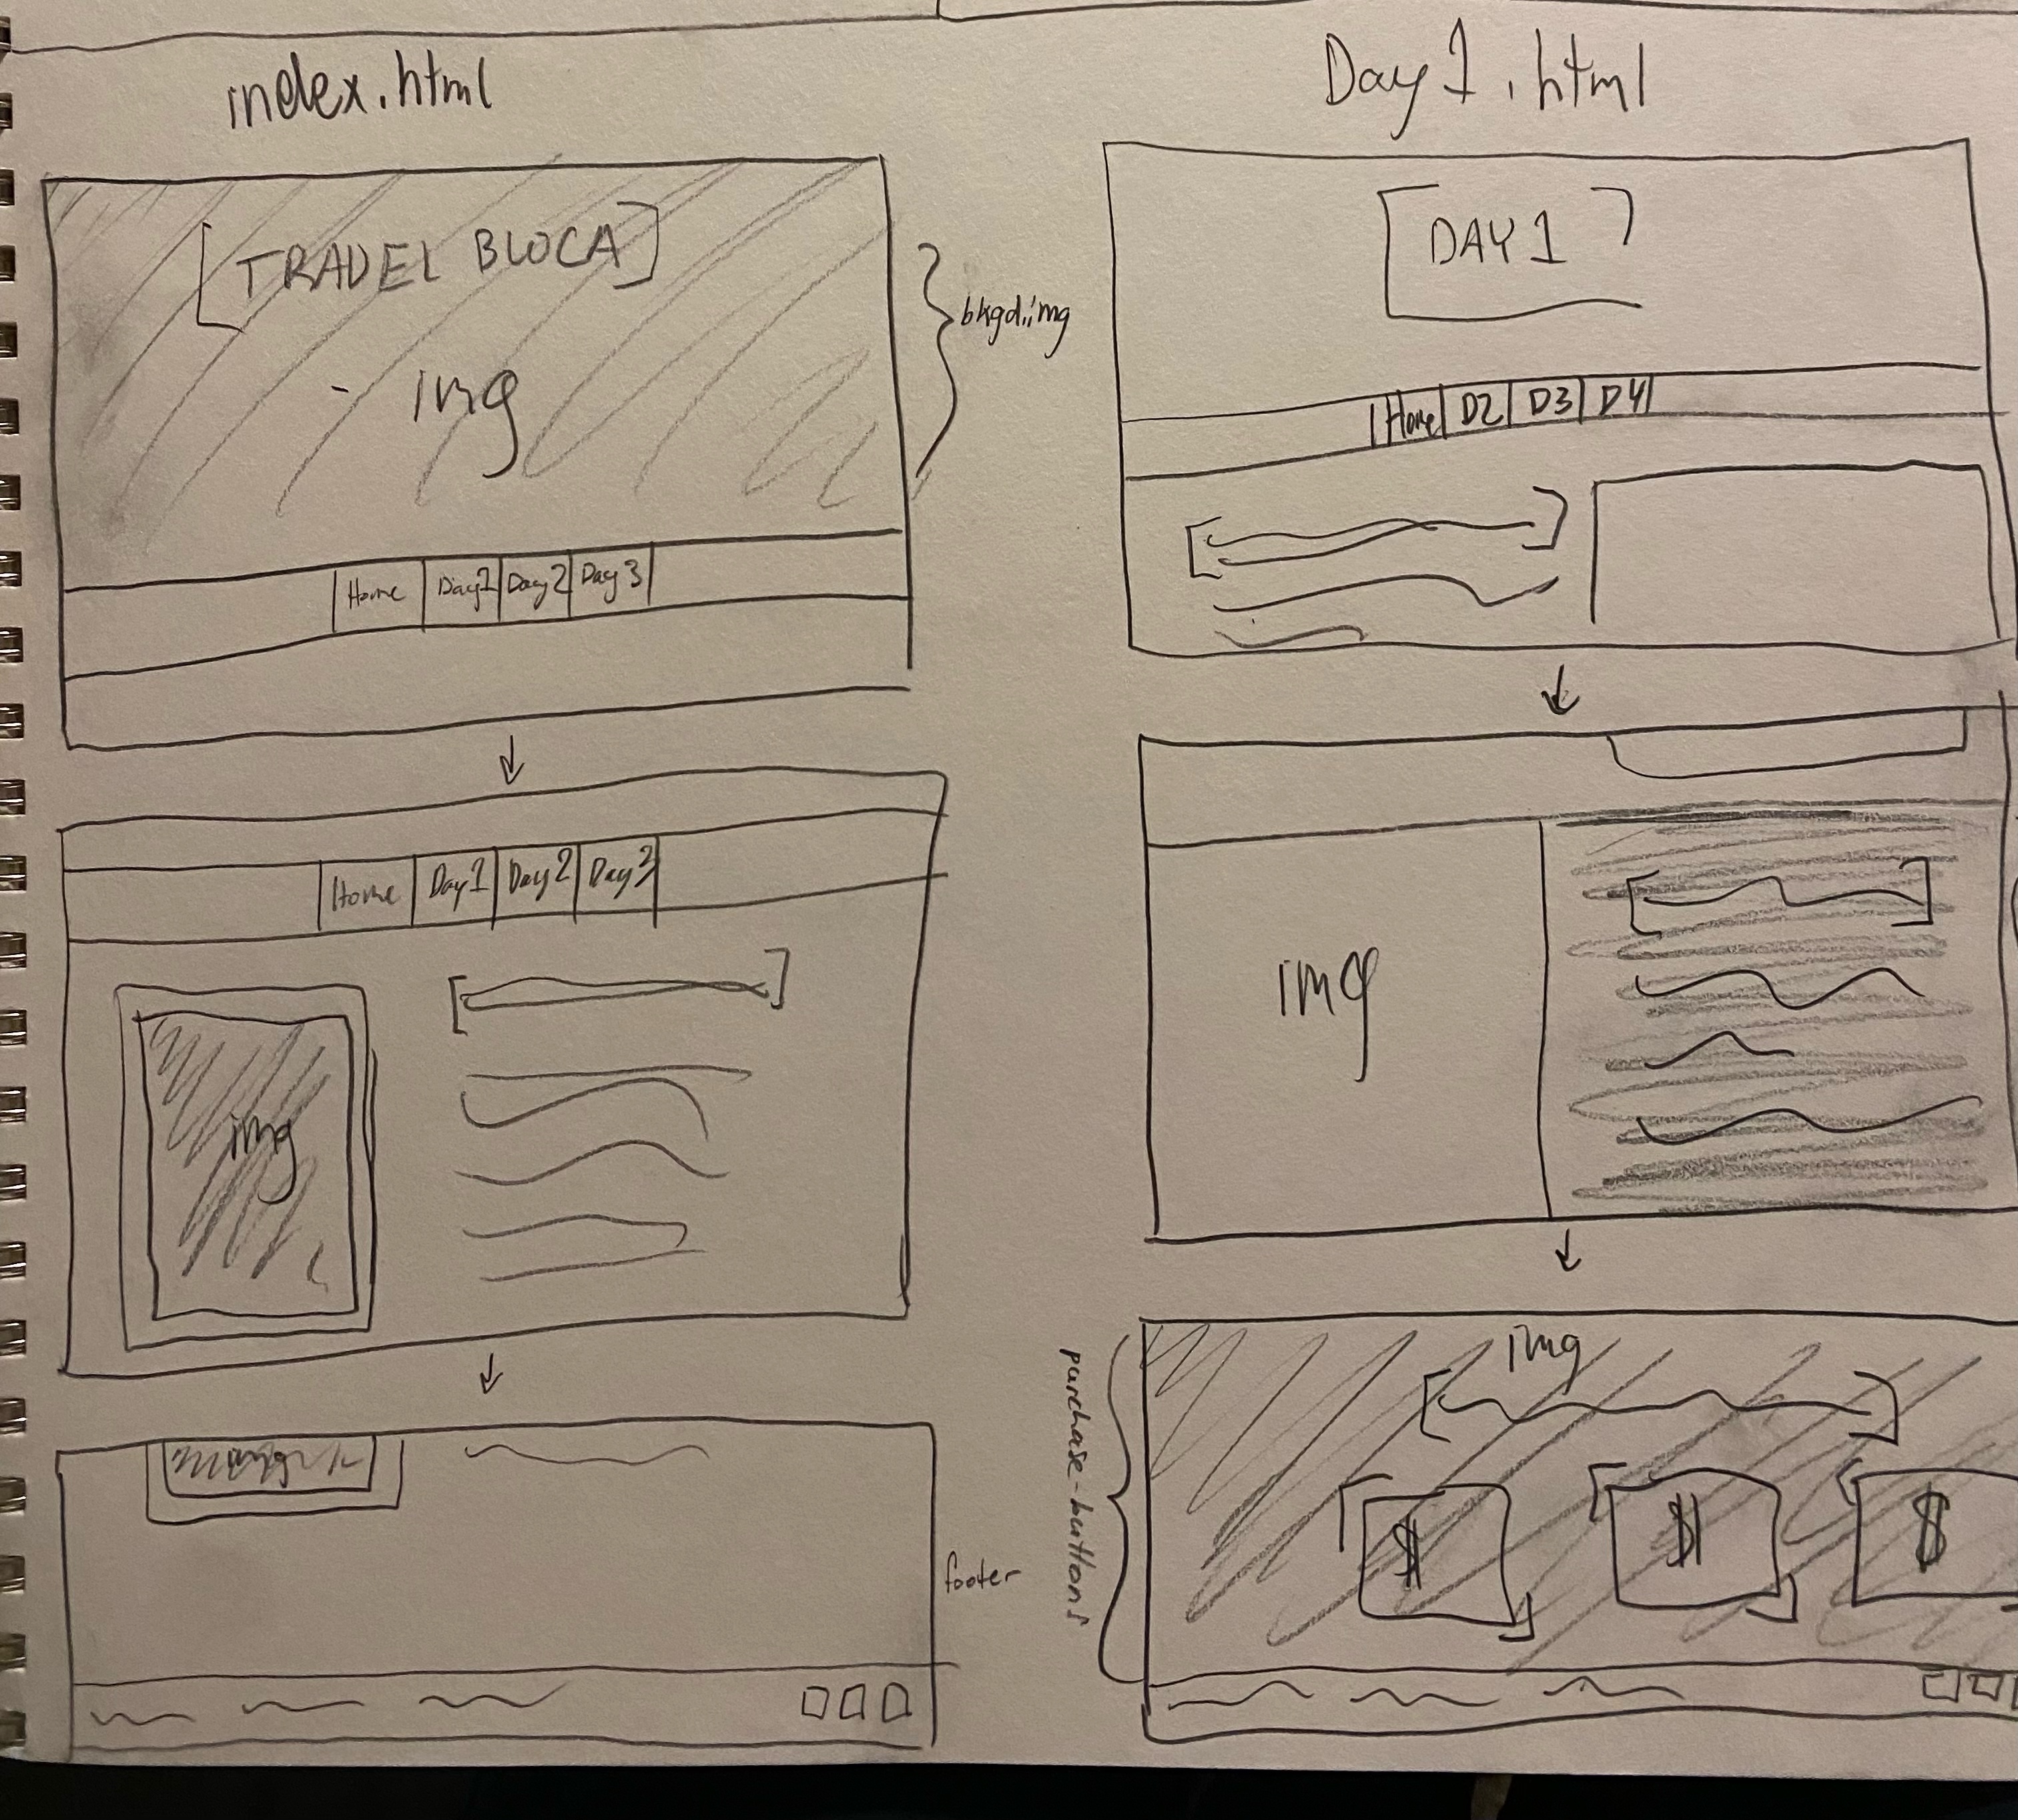 index.html
[TRAVEL BLOCA]
img
bkgd.img
Home Day1 Day2 Day3
Home Day1 Day2 Day3
img
footer
Day1.html
DAY1
Home D2 D3 D4
img
img
purchase-buttons
$ $ $